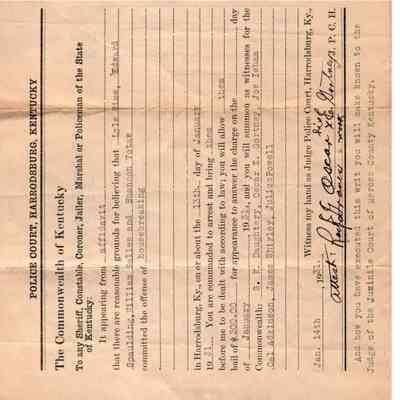 POLICE COURT, HARRODSBURG, KENTUCKY
The Commonwealth of Kentucky
To any Sheriff, Constable, Coroner, Jailer, Marshal or Policeman of the State
of Kentucky:
It appearing from affidavit
that there are reasonable grounds for believing that Edward
Spaulding, William Sallee and Shannon
committed the offense of housebreaking
in Harrodsburg, Ky., on or about the 13th. day of January
1931. You are commanded to arrest and bring them
before me to be dealt with according to law; you will allow them
bail of $200.00 for appearance to answer the charge on the day
of January 1931, and you will summon as witnesses for the
Commonwealth: Daughtery, Oscar T. Gortney, Joe Isham
Cal Adkinson, James Shirley, Julian Powell
Witness my hand as Judge Police Court, Harrodsburg, Ky.,
Jan. 14th 1931.
Oscar P. C. H.
attest:
And how you have executed this writ you will make known to the
Judge of the Juvinile Court of Mercer County Kentucky.